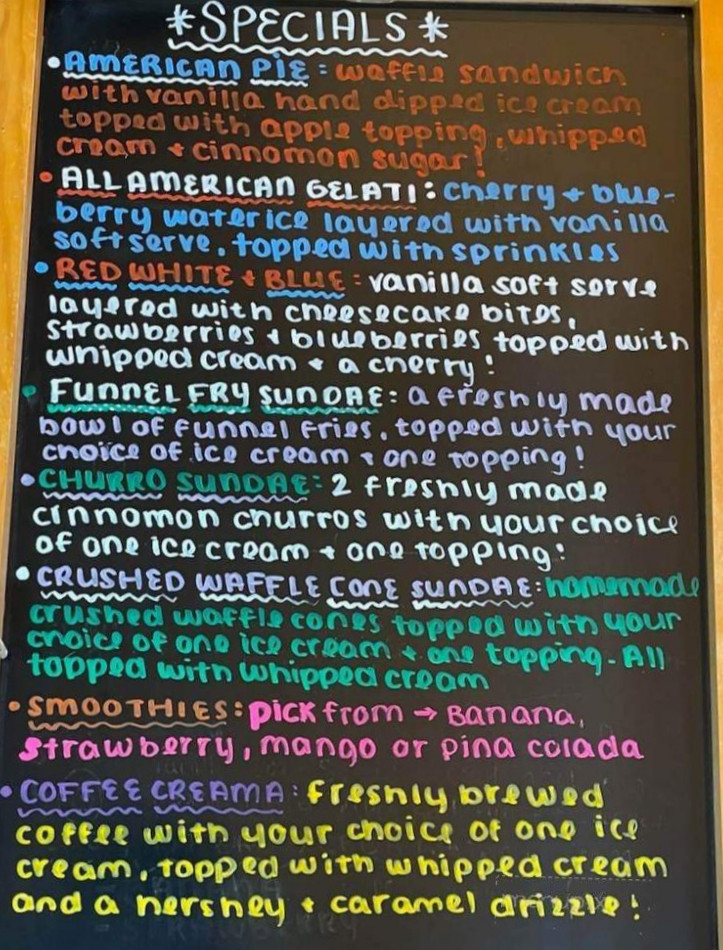 *SPECIALS*
• AMERICAN PIE: waffle sandwich
with vanilla hand dipped ice cream
topped with apple topping, whipped
cream + cinnomon sugar!
• ALL AMERICAN GELATI: cherry + blue-
berry water ice layered with vanilla
soft serve, topped with sprinkles
• RED WHITE + BLUE: vanilla soft serve
layered with cheesecake bites,
strawberries + blueberries topped with
whipped cream + a cherry!
• FUNNEL FRY SUNDAE: a freshly made
bowl of funnel fries, topped with your
choice of ice cream + one topping!
• CHURRO SUNDAE: 2 freshly made
cinnomon churros with your choice
of one ice cream + one topping!
• CRUSHED WAFFLE CONE SUNDAE: homemade
crushed waffle cones topped with your
choice of one ice cream + one topping - All
topped with whipped cream
• SMOOTHIES: pick from → Banana,
strawberry, mango or pina colada
• COFFEE CREAMA: freshly brewed
coffee with your choice of one ice
cream, topped with whipped cream
and a hershey + caramel drizzle!